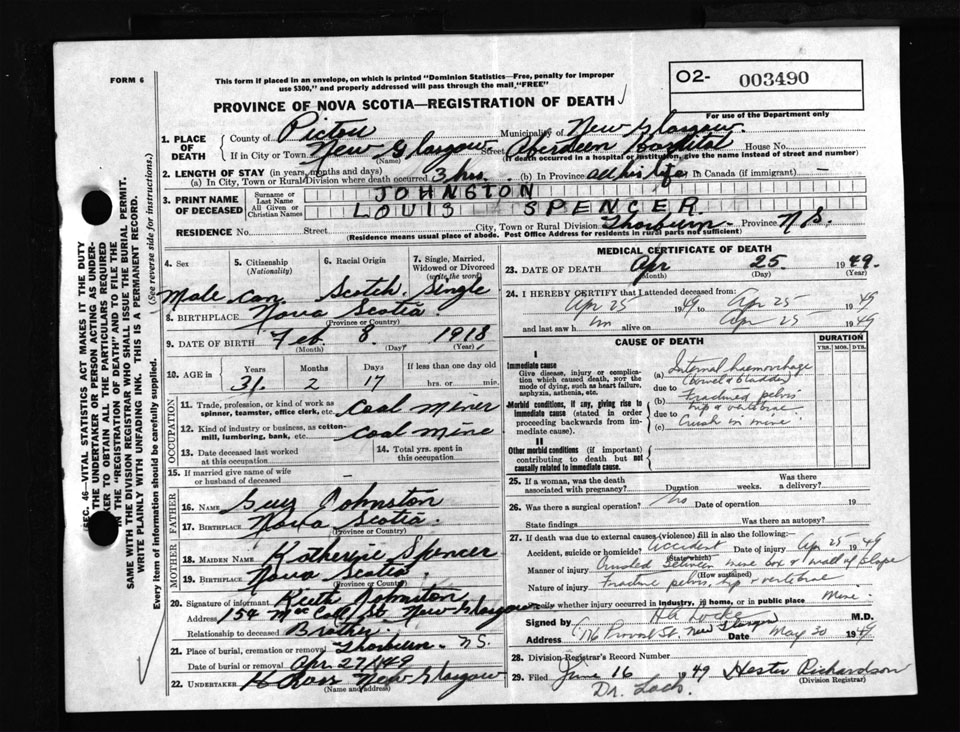 FORM 6
This form if placed in an envelope, on which is printed "Dominion Statistics—Free, penalty for improper
use $300," and properly addressed will pass through the mail, "FREE"
O2- 003490
For use of the Department only
PROVINCE OF NOVA SCOTIA—REGISTRATION OF DEATH
1. PLACE OF DEATH
County of Pictou Municipality of New Glasgow
If in City or Town New Glasgow Street Aberdeen Hospital House No.
(Name) (If death occurred in a hospital or institution, give the name instead of street and number)
2. LENGTH OF STAY (in years, months and days)
(a) In City, Town or Rural Division where death occurred 3 hrs. (b) In Province all his life In Canada (if immigrant) —
3. PRINT NAME OF DECEASED
Surname or Last Name JOHNSTON
All Given or Christian Names LOUIS SPENCER
RESIDENCE No. Street City, Town or Rural Division Thorburn Province N.S.
(Residence means usual place of abode. Post Office Address for residents in rural parts not sufficient)
4. Sex
5. Citizenship (Nationality)
6. Racial Origin
7. Single, Married, Widowed or Divorced (write the word)
Male Can. Scotch Single
8. BIRTHPLACE Nova Scotia
(Province or Country)
9. DATE OF BIRTH Feb. 8, 1918
(Month) (Day) (Year)
10. AGE in Years Months Days If less than one day
31 2 17 hrs. or min.
OCCUPATION
11. Trade, profession, or kind of work as spinner, teamster, office clerk, etc. Coal miner
12. Kind of industry or business, as cotton-mill, lumbering, bank, etc. Coal mine
13. Date deceased last worked at this occupation
14. Total yrs. spent in this occupation
15. If married give name of wife or husband of deceased
FATHER
16. NAME Guy Johnston
17. BIRTHPLACE Nova Scotia
(Province or Country)
MOTHER
18. MAIDEN NAME Katherine Spencer
19. BIRTHPLACE Nova Scotia
(Province or Country)
20. Signature of informant Keith Johnston
Address 154 McColl St. New Glasgow
Relationship to deceased Brother
21. Place of burial, cremation or removal Thorburn N.S.
Date of burial or removal Apr. 27/49
22. UNDERTAKER New Glasgow
(Name and address)
MEDICAL CERTIFICATE OF DEATH
23. DATE OF DEATH Apr 25 1949.
(Month) (Day) (Year)
24. I HEREBY CERTIFY that I attended deceased from:
Apr 25 1949 to Apr 25 1949
and last saw him alive on Apr 25 1949
CAUSE OF DEATH
DURATION
YRS. MOS. DYS.
I
Immediate cause
Give disease, injury or complication which caused death, not the mode of dying, such as heart failure, asphyxia, asthenia, etc.
(a) Internal haemorrhage
(bowel & bladder)
due to
Morbid conditions, if any, giving rise to immediate cause (stated in order proceeding backwards from immediate cause).
(b) Fractured pelvis
hip & vertebrae
due to
(c) Crush in mine
II
Other morbid conditions (if important) contributing to death but not causally related to immediate cause.
25. If a woman, was the death associated with pregnancy? Duration weeks. Was there a delivery?
26. Was there a surgical operation? No Date of operation 19
State findings Was there an autopsy?
27. If death was due to external causes (violence) fill in also the following:—
Accident, suicide or homicide? Accident Date of injury Apr 25 1949
(State which)
Manner of injury Crushed between mine box & wall of slope
(How sustained)
Nature of injury Fracture pelvis, hip & vertebrae
Specify whether injury occurred in industry, in home, or in public place Mine
Signed by H.A. Locke M.D.
Address 176 Provost St. New Glasgow Date May 30 1949
28. Division Registrar's Record Number
29. Filed June 16 1949 Hester Richardson
(Division Registrar)
Dr. Lock.
SEC. 46—VITAL STATISTICS ACT MAKES IT THE DUTY
OF THE UNDERTAKER OR PERSON ACTING AS UNDER-
TAKER TO OBTAIN ALL THE PARTICULARS REQUIRED
IN THE "REGISTRATION OF DEATH" AND TO FILE THE
SAME WITH THE DIVISION REGISTRAR WHO SHALL ISSUE THE BURIAL PERMIT.
WRITE PLAINLY WITH UNFADING INK. THIS IS A PERMANENT RECORD.
Every item of information should be carefully supplied.
(See reverse side for instructions.)